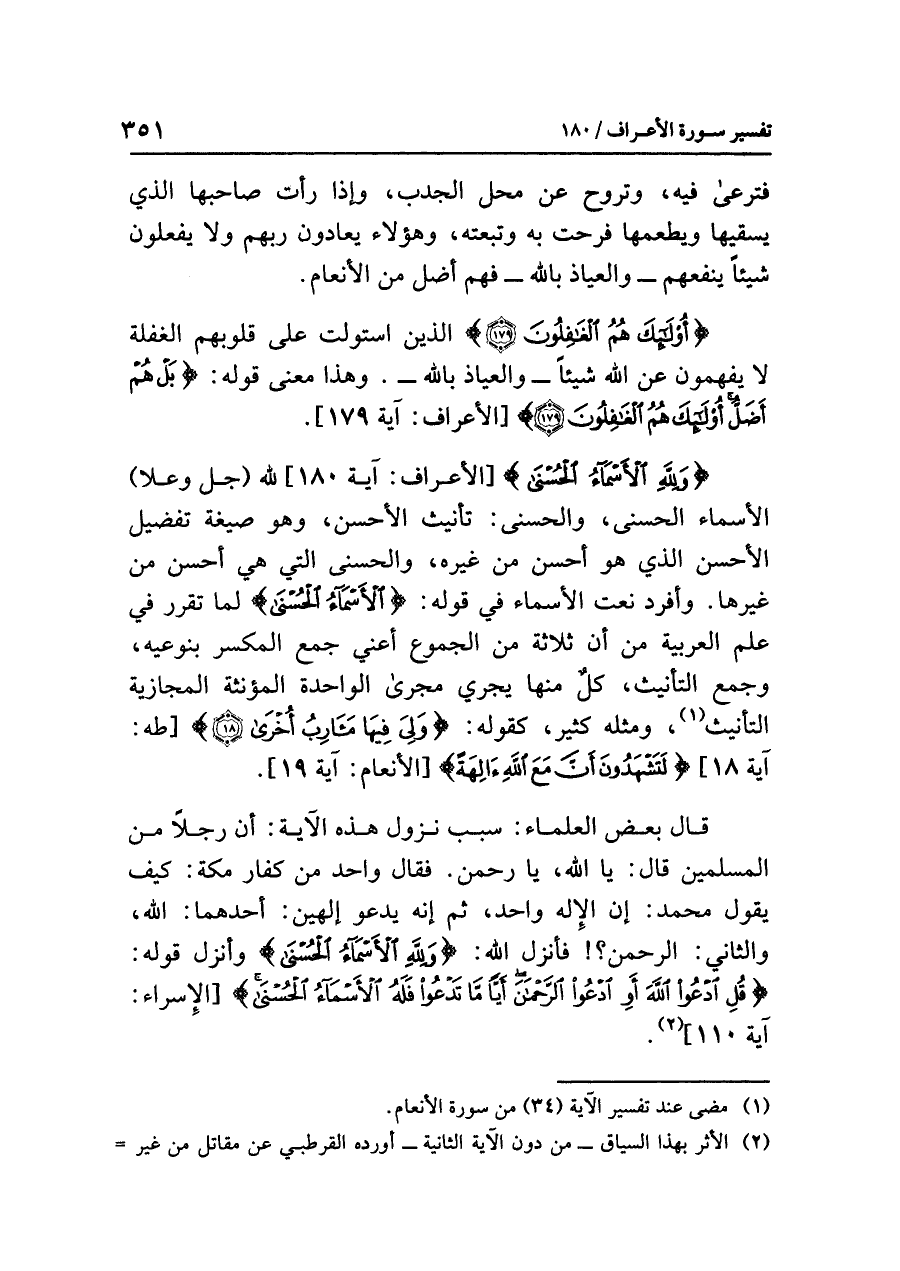 تفسير سورة الأعراف / ١٨٠ ٣٥١
فترعىٰ فيه، وتروح عن محل الجدب، وإذا رأت صاحبها الذي
يسقيها ويطعمها فرحت به وتبعته، وهؤلاء يعادون ربهم ولا يفعلون
شيئاً ينفعهم ــ والعياذ بالله ــ فهم أضل من الأنعام.
﴿أُوْلَٰٓئِكَ هُمُ ٱلْغَٰفِلُونَ ۝١٧٩﴾ الذين استولت على قلوبهم الغفلة
لا يفهمون عن الله شيئاً ــ والعياذ بالله ــ . وهذا معنى قوله: ﴿بَلْ هُمْ
أَضَلُّ ۚ أُوْلَٰٓئِكَ هُمُ ٱلْغَٰفِلُونَ ۝١٧٩﴾ [الأعراف: آية ١٧٩].
﴿وَلِلَّهِ ٱلْأَسْمَآءُ ٱلْحُسْنَىٰ﴾ [الأعراف: آية ١٨٠] لله (جل وعلا)
الأسماء الحسنى، والحسنى: تأنيث الأحسن، وهو صيغة تفضيل
الأحسن الذي هو أحسن من غيره، والحسنى التي هي أحسن من
غيرها. وأفرد نعت الأسماء في قوله: ﴿ٱلْأَسْمَآءُ ٱلْحُسْنَىٰ﴾ لما تقرر في
علم العربية من أن ثلاثة من الجموع أعني جمع المكسر بنوعيه،
وجمع التأنيث، كلٌ منها يجري مجرىٰ الواحدة المؤنثة المجازية
التأنيث(١)، ومثله كثير، كقوله: ﴿وَلِىَ فِيهَا مَـَٔارِبُ أُخْرَىٰ ۝١٨﴾ [طه:
آية ١٨] ﴿لَتَشْهَدُونَ أَنَّ مَعَ ٱللَّهِ ءَالِهَةً﴾ [الأنعام: آية ١٩].
قال بعض العلماء: سبب نزول هذه الآية: أن رجلاً من
المسلمين قال: يا الله، يا رحمن. فقال واحد من كفار مكة: كيف
يقول محمد: إن الإِله واحد، ثم إنه يدعو إلهين: أحدهما: الله،
والثاني: الرحمن؟! فأنزل الله: ﴿وَلِلَّهِ ٱلْأَسْمَآءُ ٱلْحُسْنَىٰ﴾ وأنزل قوله:
﴿قُلِ ٱدْعُواْ ٱللَّهَ أَوِ ٱدْعُواْ ٱلرَّحْمَٰنَ ۖ أَيًّا مَّا تَدْعُواْ فَلَهُ ٱلْأَسْمَآءُ ٱلْحُسْنَىٰ ۚ﴾ [الإِسراء:
آية ١١٠](٢).
(١) مضى عند تفسير الآية (٣٤) من سورة الأنعام.
(٢) الأثر بهذا السياق ــ من دون الآية الثانية ــ أورده القرطبي عن مقاتل من غير =